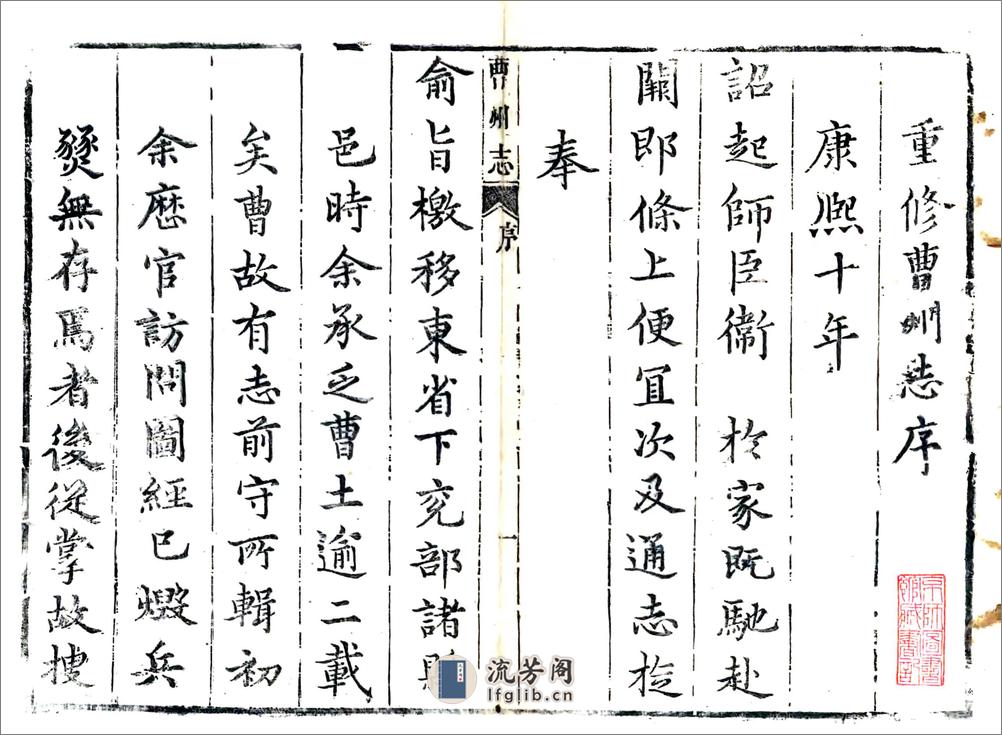 重修曹州志序
康熙十年
詔起師臣衞 於家既馳赴
闕即條上便宜次及通志於
奉
俞旨檄移東省下兖部諸
邑時余承乏曹土逾二載
矣曹故有志前守所輯初
余歷官訪問圖經已燬兵
燹無存焉者後從掌故搜
曹州志
序
一
京師圖書館藏書記
流芳阁
lfglib.cn